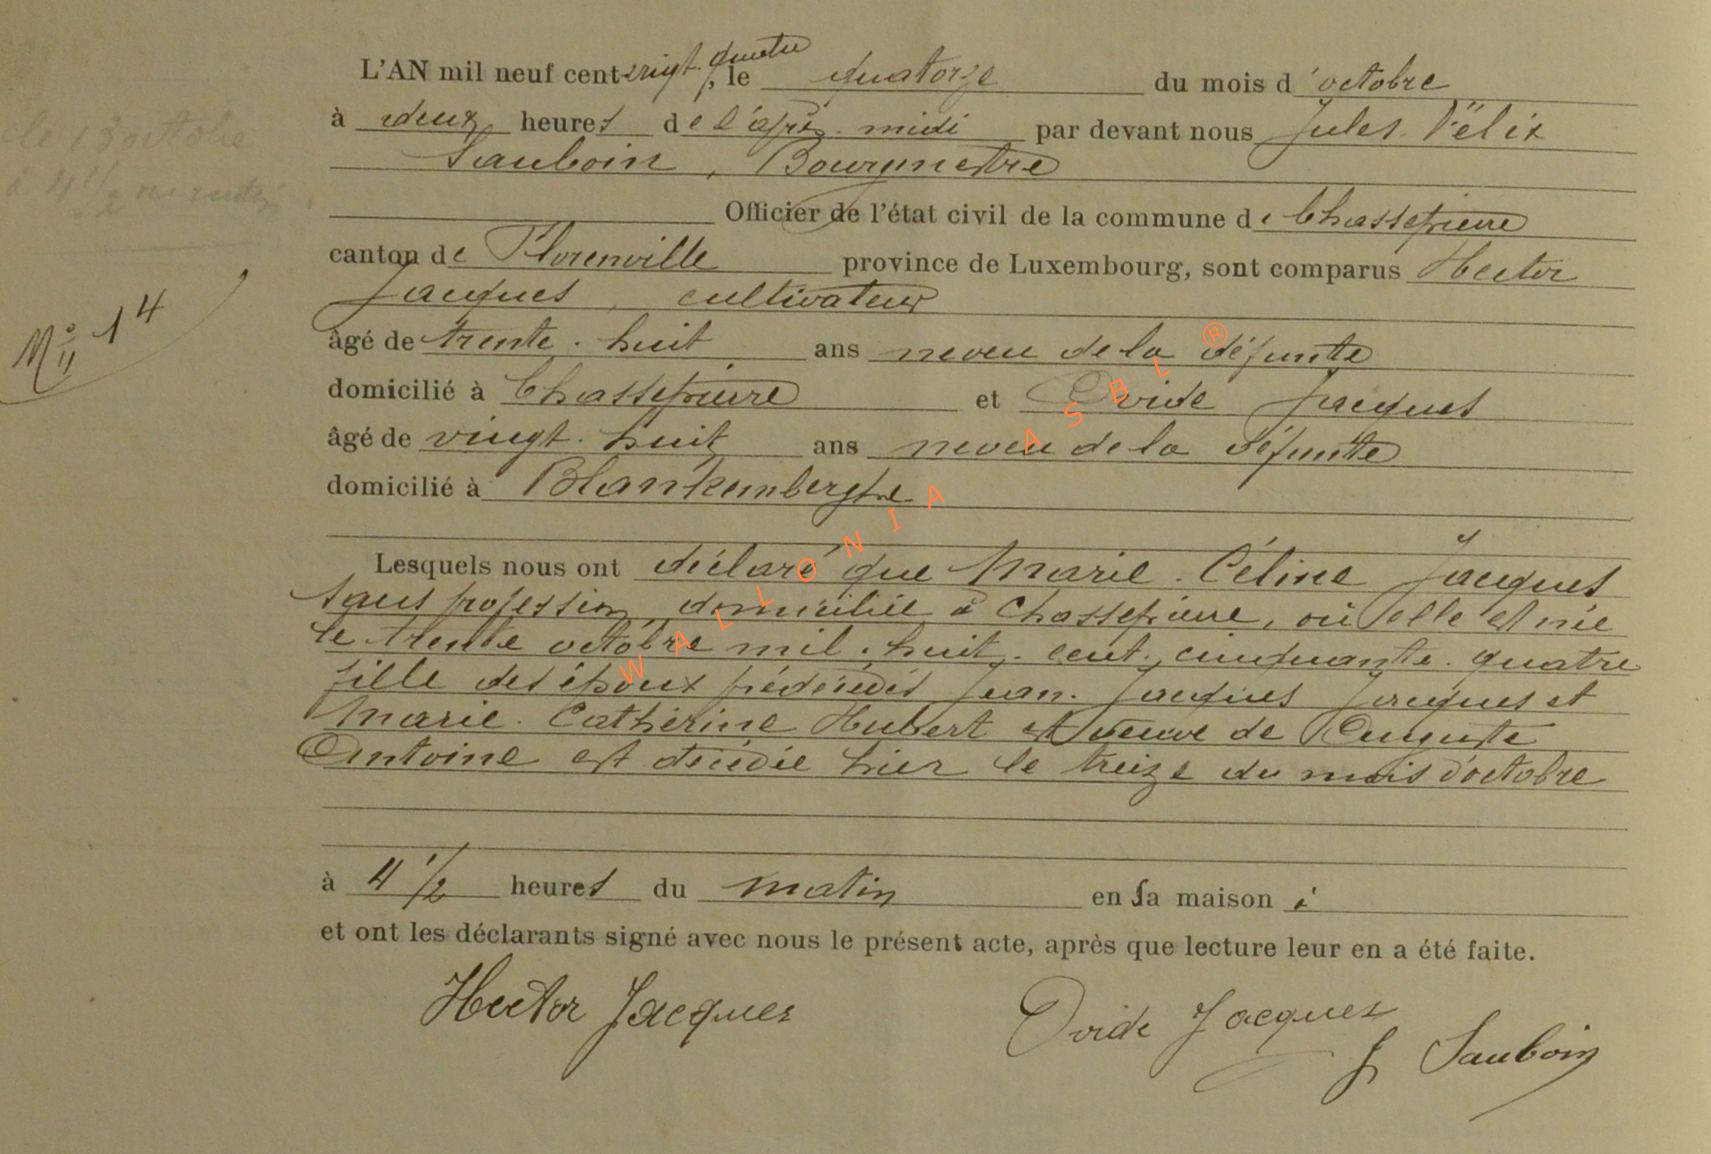 L'AN mil neuf cent vingt-quatre, le quatorze du mois d'octobre
à deux heures de l'après-midi par devant nous Jules Félix
Sauboin, Bourgmestre
Officier de l'état civil de la commune de Chassepierre
canton de Florenville province de Luxembourg, sont comparus Hector
Jacques, cultivateur
âgé de trente-huit ans neveu de la défunte
domicilié à Chassepierre et Ovide Jacques
âgé de vingt-huit ans neveu de la défunte
domicilié à Blankemberghe
Lesquels nous ont déclaré que Marie-Céline Jacques
sans profession, domiciliée à Chassepierre, où elle est née
le trente octobre mil-huit-cent-cinquante-quatre
fille des époux prédécédés Jean-Jacques Jacques et
Marie-Catherine Hubert et veuve de Auguste
Antoine est décédée hier le treize du mois d'octobre
à 4 1/2 heures du matin en sa maison
et ont les déclarants signé avec nous le présent acte, après que lecture leur en a été faite.
Hector Jacques
Ovide Jacques
J Sauboin
le 13 octobre
à 4 1/2 matin
No 14
WALLONIA ASBL ®